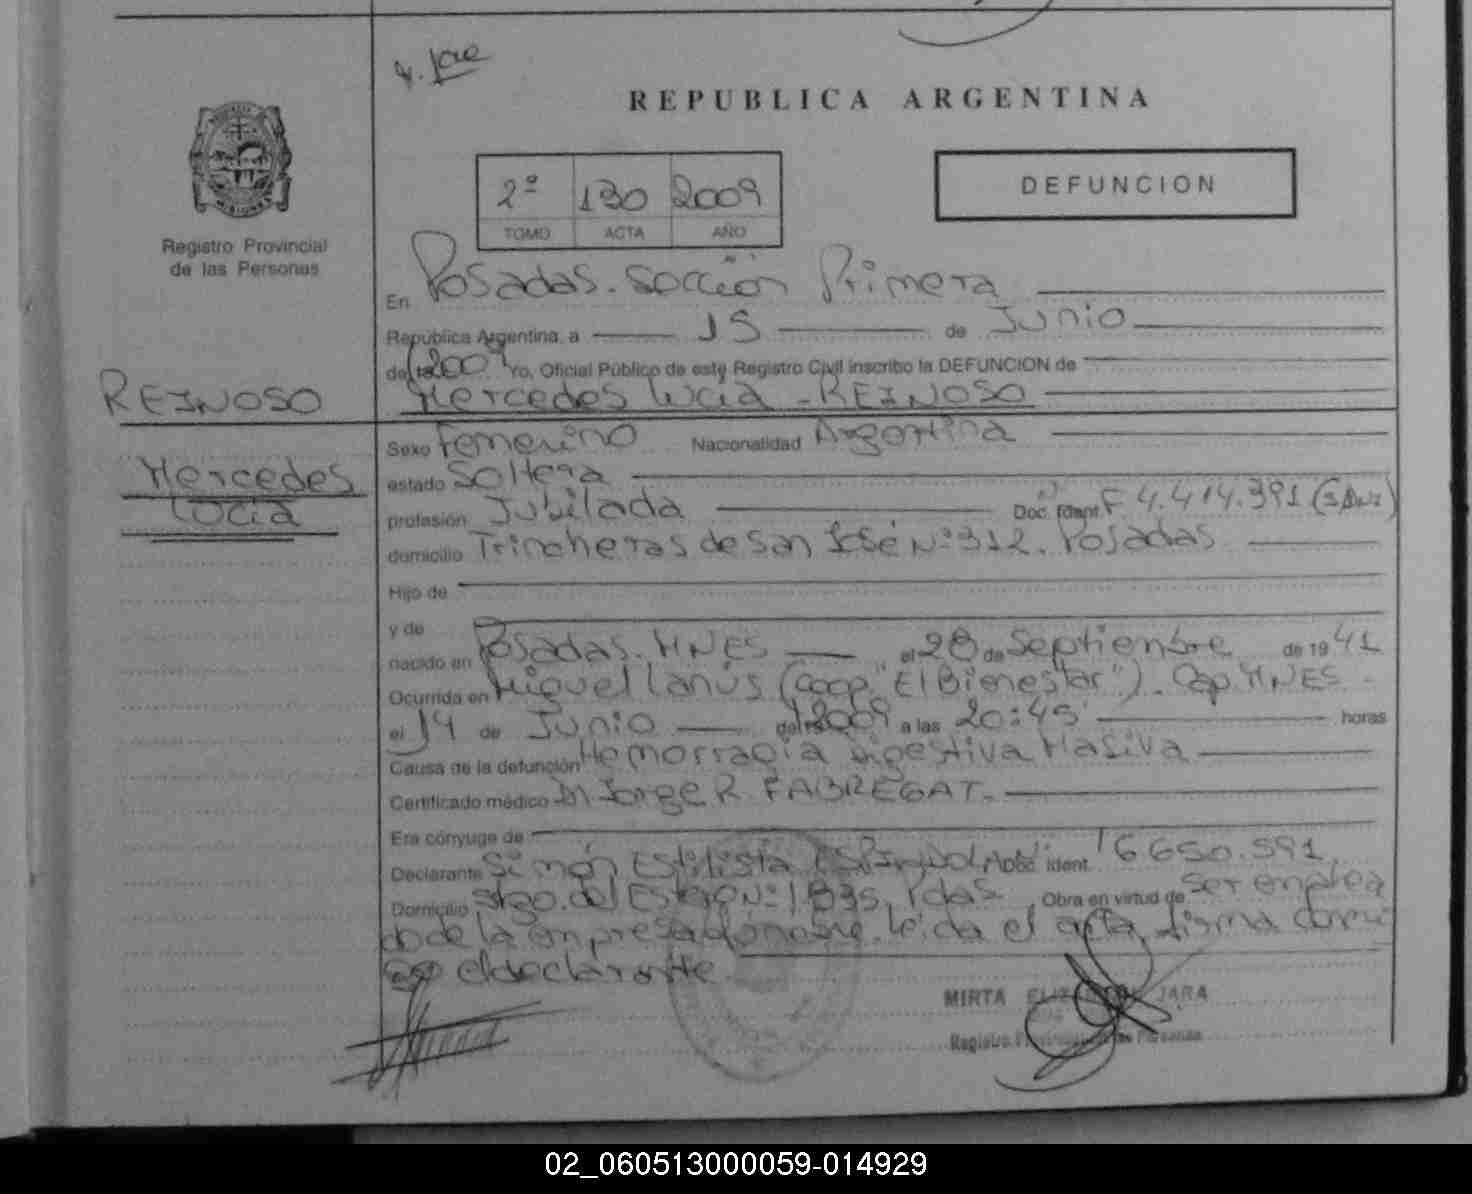 REPUBLICA ARGENTINA
2º 130 2009
TOMO ACTA AÑO
DEFUNCION
MISIONES
Registro Provincial
de las Personas
En Posadas. Sección Primera
República Argentina, a 15 de Junio
de 2009 yo, Oficial Público de este Registro Civil inscribo la DEFUNCION de
REINOSO
Mercedes Lucía - REINOSO
Mercedes
Lucía
Sexo Femenino Nacionalidad Argentina
estado Soltera
profesión Jubilada Doc. Ident. F 4.414.391
domicilio Trincheras de San José Nº 312. Posadas
Hijo de
y de
nacido en Posadas. MNES el 28 de Septiembre de 1941
Ocurrida en Miguel Lanús (Coop. "El Bienestar"). Cap. MNES
el 14 de Junio del 2009 a las 20:45 horas
Causa de la defunción Hemorragia Digestiva Masiva
Certificado médico Dr Jorge R. FABREGAT.
Era cónyuge de
Declarante Simón Doc. Ident. 6650.591
Domicilio Stgo. del Estero Nº Pdas Obra en virtud de ser emplea
do de la empresa fúnebre. Leída el acta, firma conmi
go el declarante
MIRTA JARA
02_060513000059-014929